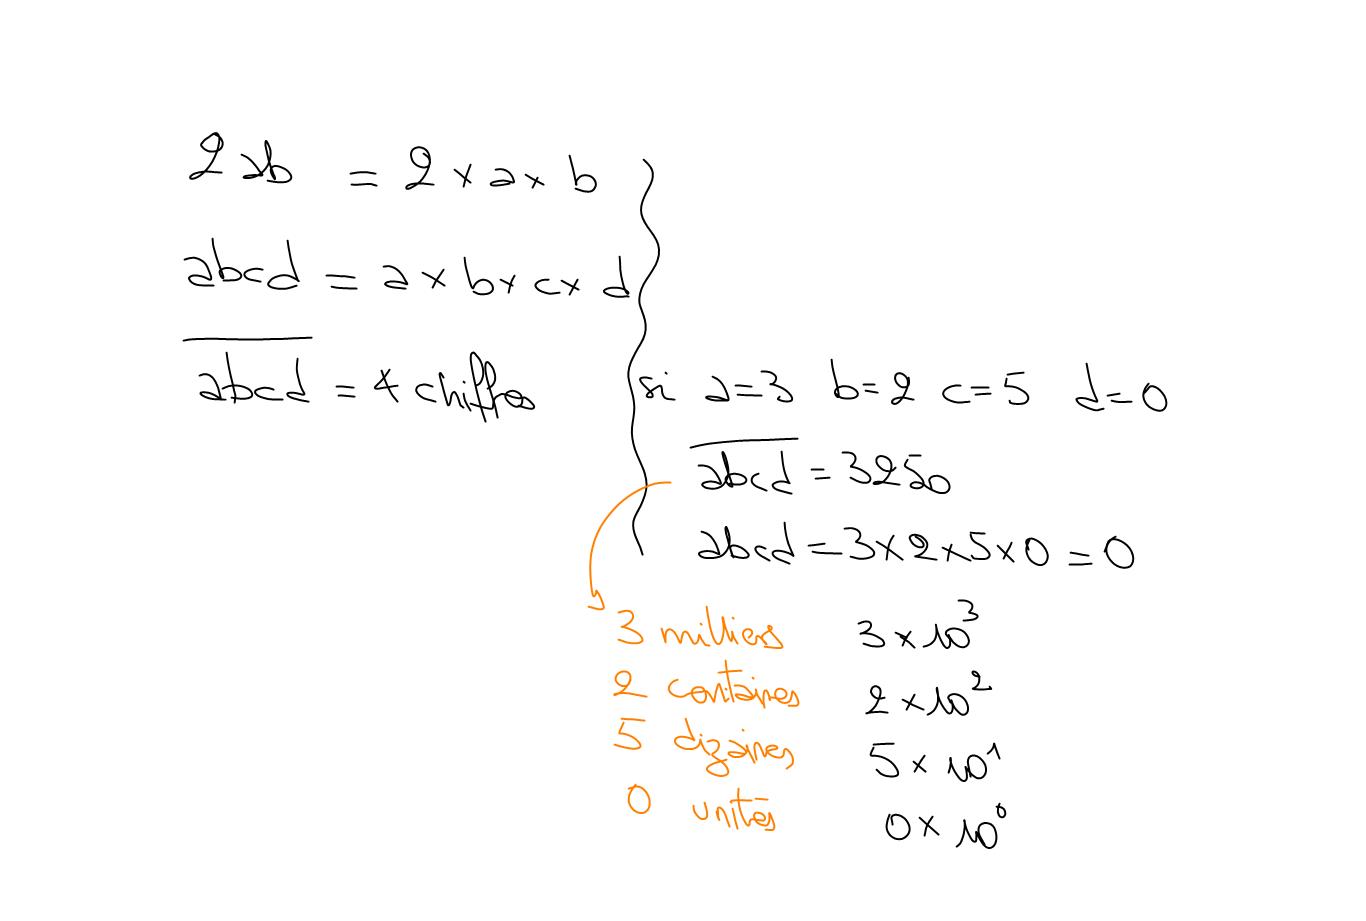 2ab = 2 × a × b
abcd = a × b × c × d
a̅b̅c̅d̅ = 4 chiffres
si a=3 b=2 c=5 d=0
a̅b̅c̅d̅ = 3250
abcd = 3×2×5×0 = 0
3 milliers 3 × 10³
2 centaines 2 × 10²
5 dizaines 5 × 10¹
0 unités 0 × 10⁰